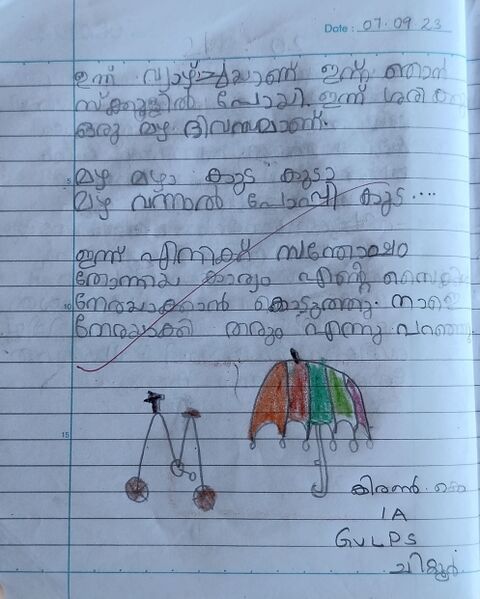 Date : 07.09.23
ഇന്ന് വ്യാഴ്ച്ചയാണ് ഇന്ന് ഞാൻ
സ്ക്കൂളിൽ പോയി. ഇന്ന് ശരിക്കു
ഒരു മഴ ദിവസമാണ്.
5
മഴ മഴാ കുട കുടാ
മഴ വന്നാൽ പോപ്പി കുട ....
ഇന്ന് എനിക്ക് സന്തോഷം
തോന്നിയ കാര്യം എന്റെ സൈക്കി
10
നേരയാക്കാൻ കൊടുത്തു. നാളെ
നേരയാക്കി തരും എന്നു പറഞ്ഞു.
15
കിരൺ. കെ
1A
GVLPS
ചിറ്റൂർ